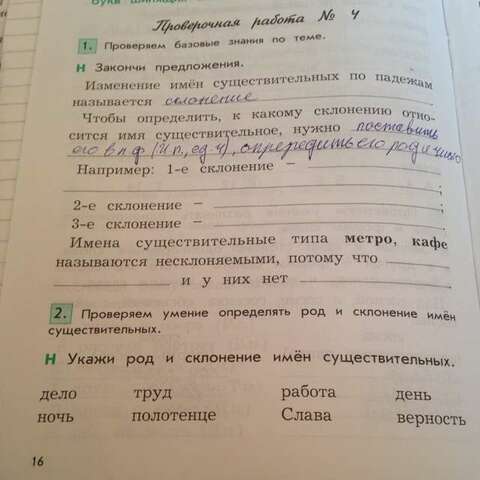 Проверочная работа № 4
1. Проверяем базовые знания по теме.
Н Закончи предложения.
Изменение имён существительных по падежам
называется склонение
Чтобы определить, к какому склонению отно-
сится имя существительное, нужно поставить
его в н.ф (И.п, ед.ч), определить его род и
Например: 1-е склонение –
;
2-е склонение – ;
3-е склонение – .
Имена существительные типа метро, кафе
называются несклоняемыми, потому что
и у них нет .
2. Проверяем умение определять род и склонение имён
существительных.
Н Укажи род и склонение имён существительных.
дело труд работа день
ночь полотенце Слава верность
16